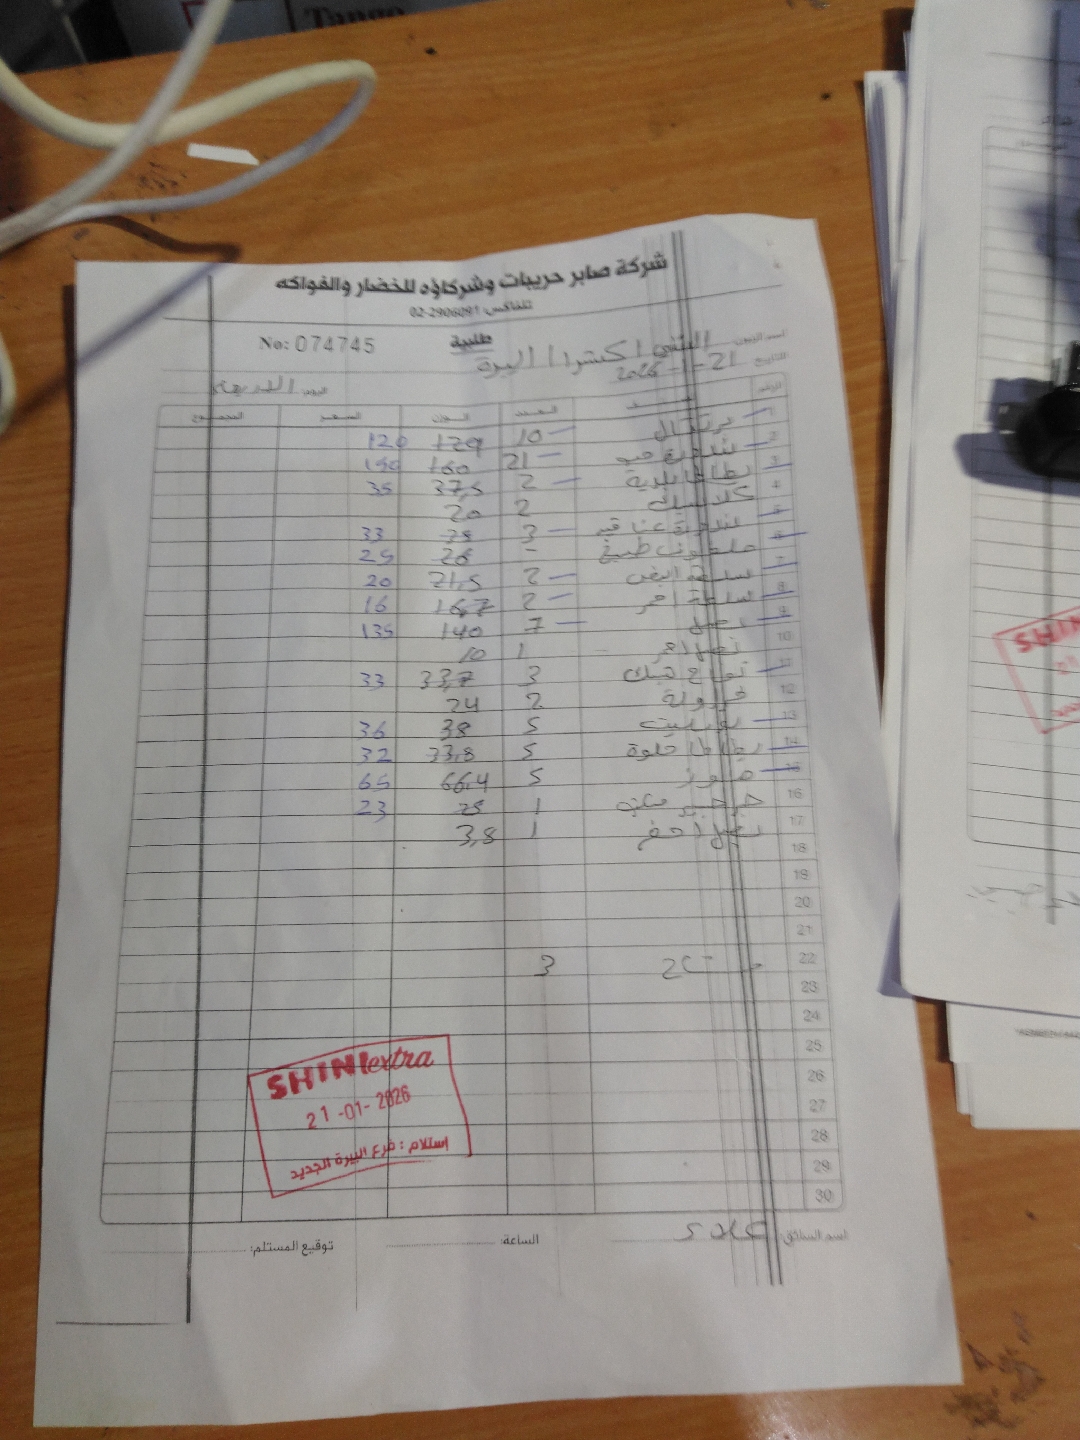 شركة صابر حريبات وشركاؤه للخضار والفواكه
تلفاكس: 02-2906091
طلبية
No: 074745
اسم الزبون الشني اكسترا / البيرة
التاريخ 21-1-2026
اليوم الاربعاء
الرقم الصنف العدد الوزن السعر المجموع
1 برتقال 10 129 120
2 بندورة حب 21 160 150
3 بطاطا بلدية 2 37,5 35
4 2 20
5 بندورة عناقيد 3 38 33
6 ملفوف طبيخ - 26 25
7 ابيض 2 21,5 20
8 احمر 2 16,7 16
9 بصل 7 140 135
10 بصل احمر 1 10
11 تفاح 3 33,7 33
12 فراولة 2 24
13 5 38 36
14 بطاطا حلوة 5 33,8 32
15 موز 5 66,4 65
16 1 25 23
17 بصل اخضر 1 3,8
18
19
20
21
22 3
23
24
25
26
27
28
29
30
SHINI extra
21-01-2026
استلام : فرع البيرة الجديد
اسم السائق:
الساعة:
توقيع المستلم: